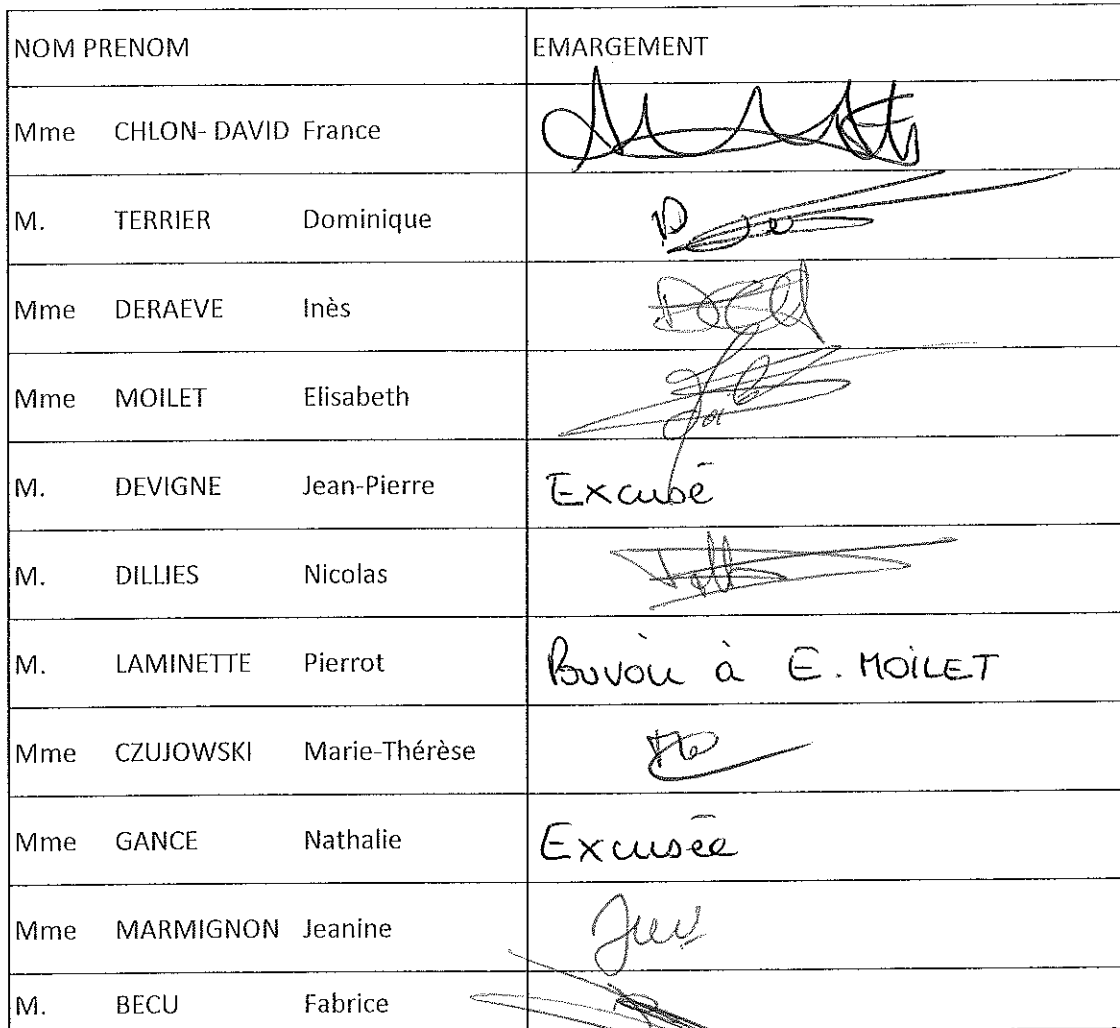 NOM PRENOM EMARGEMENT
Mme CHLON- DAVID France
M. TERRIER Dominique
Mme DERAEVE Inès
Mme MOILET Elisabeth
M. DEVIGNE Jean-Pierre Excusé
M. DILLIES Nicolas
M. LAMINETTE Pierrot Pouvoir à E. MOILET
Mme CZUJOWSKI Marie-Thérèse
Mme GANCE Nathalie Excusée
Mme MARMIGNON Jeanine
M. BECU Fabrice